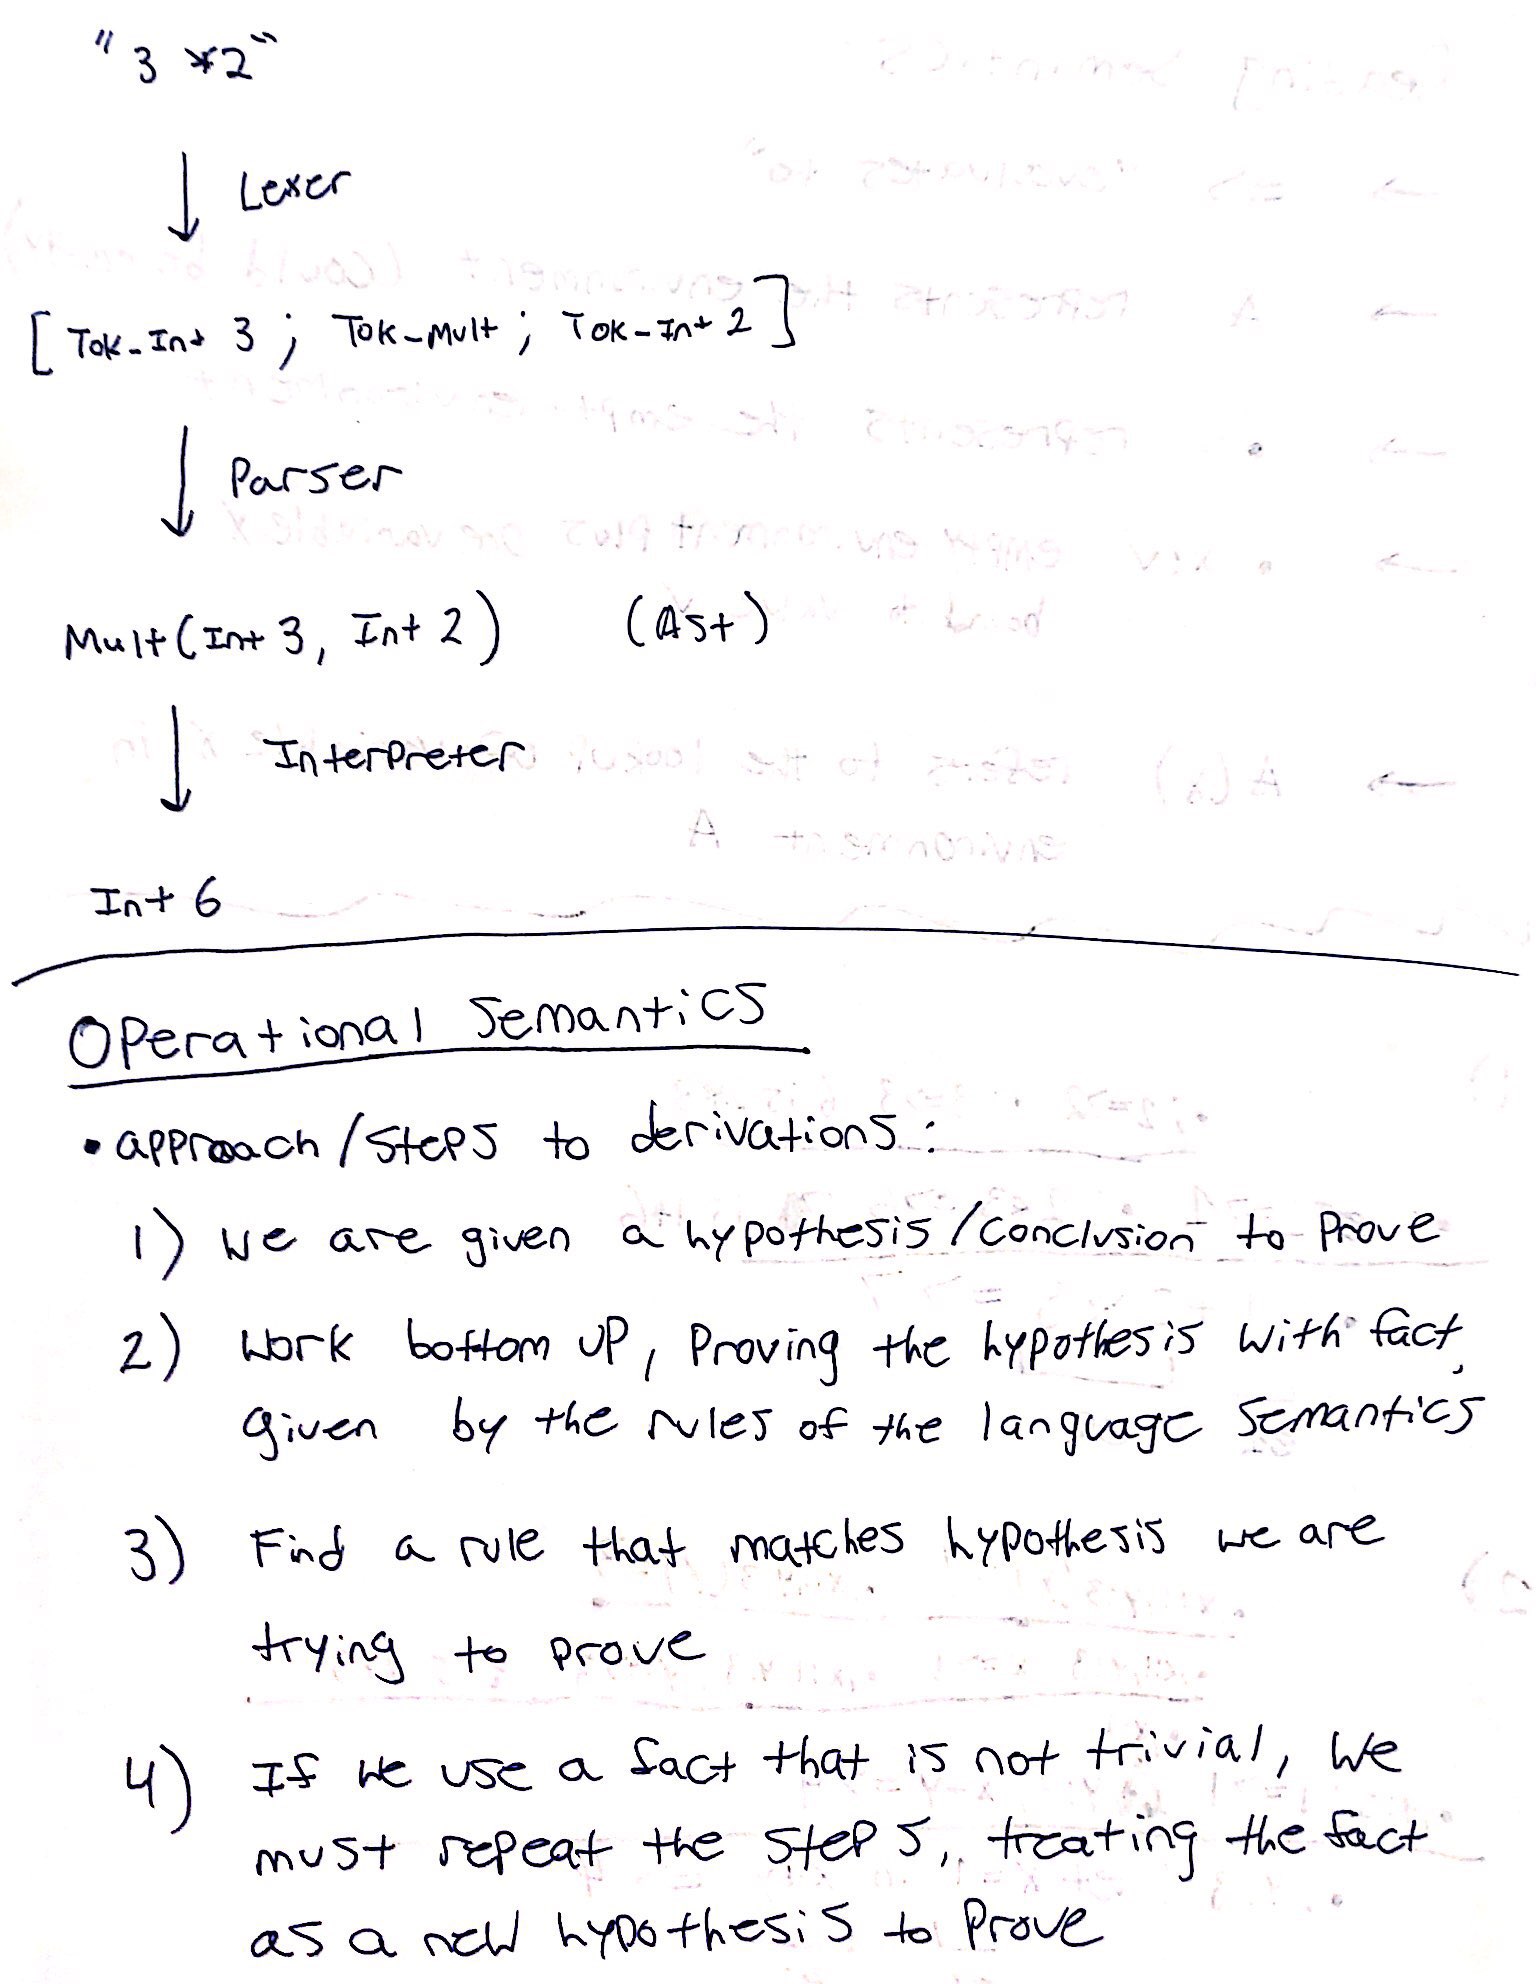 "3 *2"
Lexer
[Tok-Int 3; Tok-Mult; Tok-Int 2]
Parser
Mult(Int 3, Int 2) (Ast)
Interpreter
Int 6
Operational Semantics
• approach/steps to derivations:
1) we are given a hypothesis/conclusion to prove
2) Work bottom up, Proving the hypothesis with fact,
given by the rules of the language semantics
3) Find a rule that matches hypothesis we are
trying to prove
4) If we use a fact that is not trivial, we
must repeat the steps, treating the fact
as a new hypothesis to prove